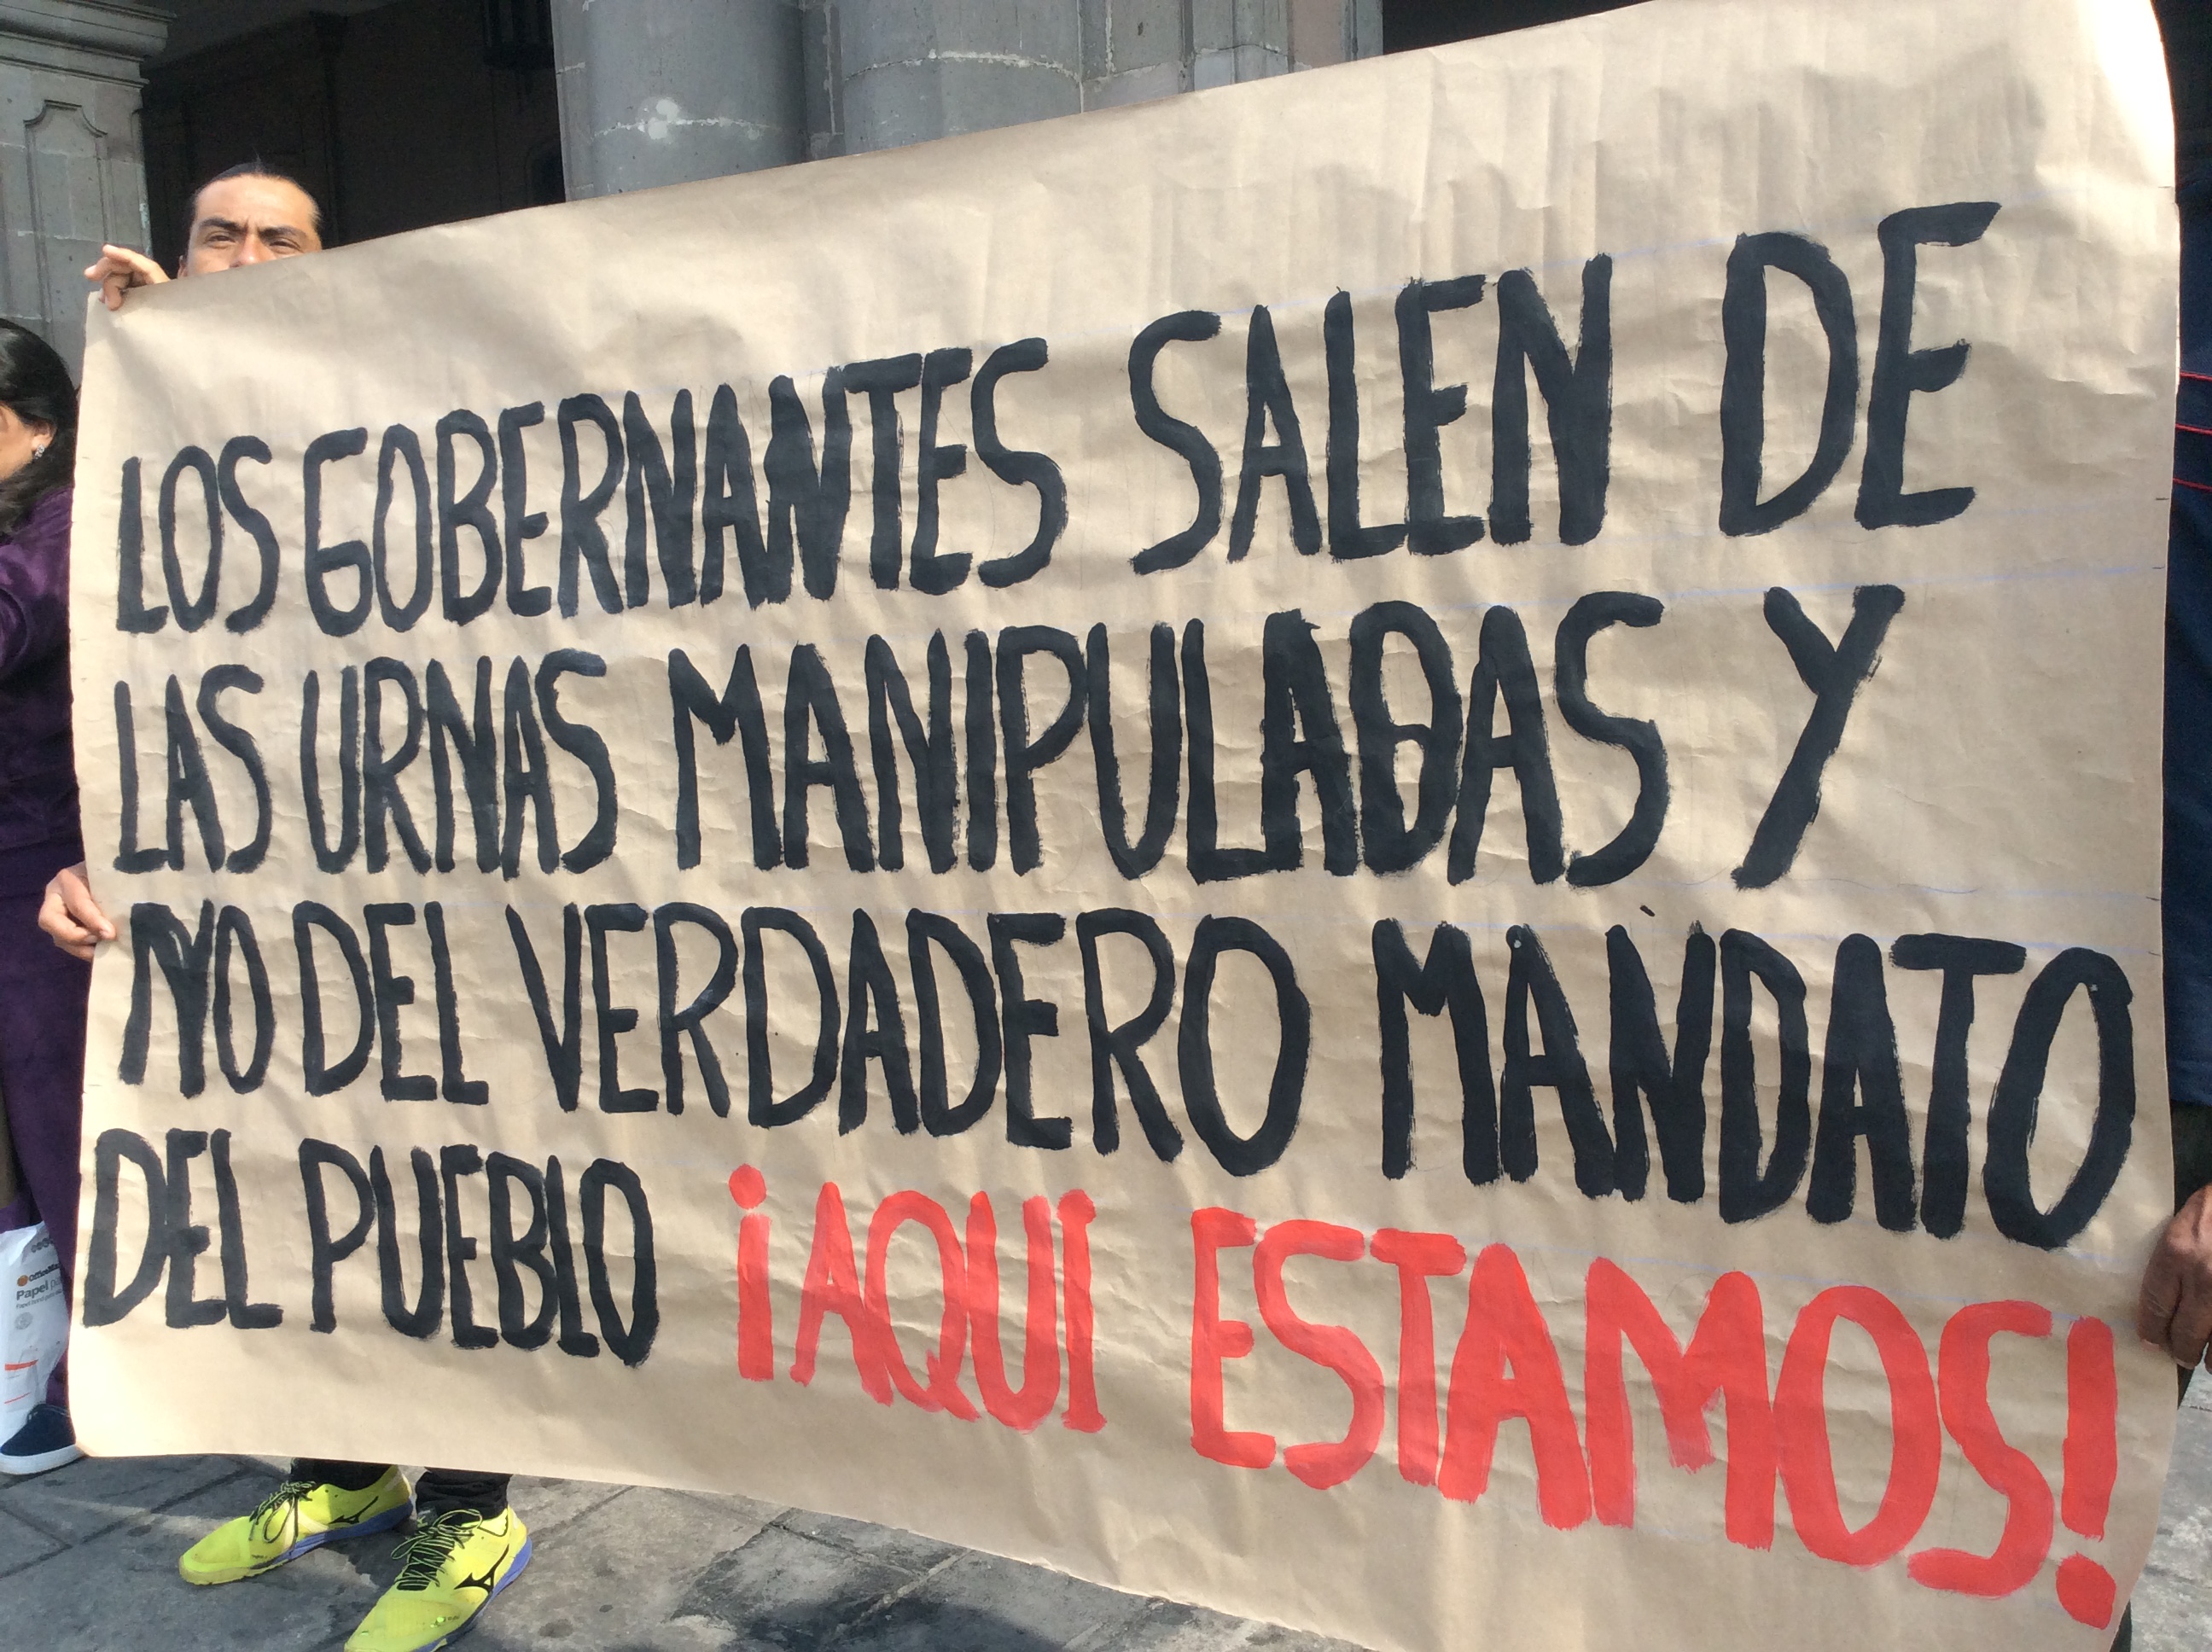 LOS GOBERNANTES SALEN DE
LAS URNAS MANIPULADAS Y
NO DEL VERDADERO MANDATO
DEL PUEBLO ¡AQUI ESTAMOS!
OfficeMax
Papel